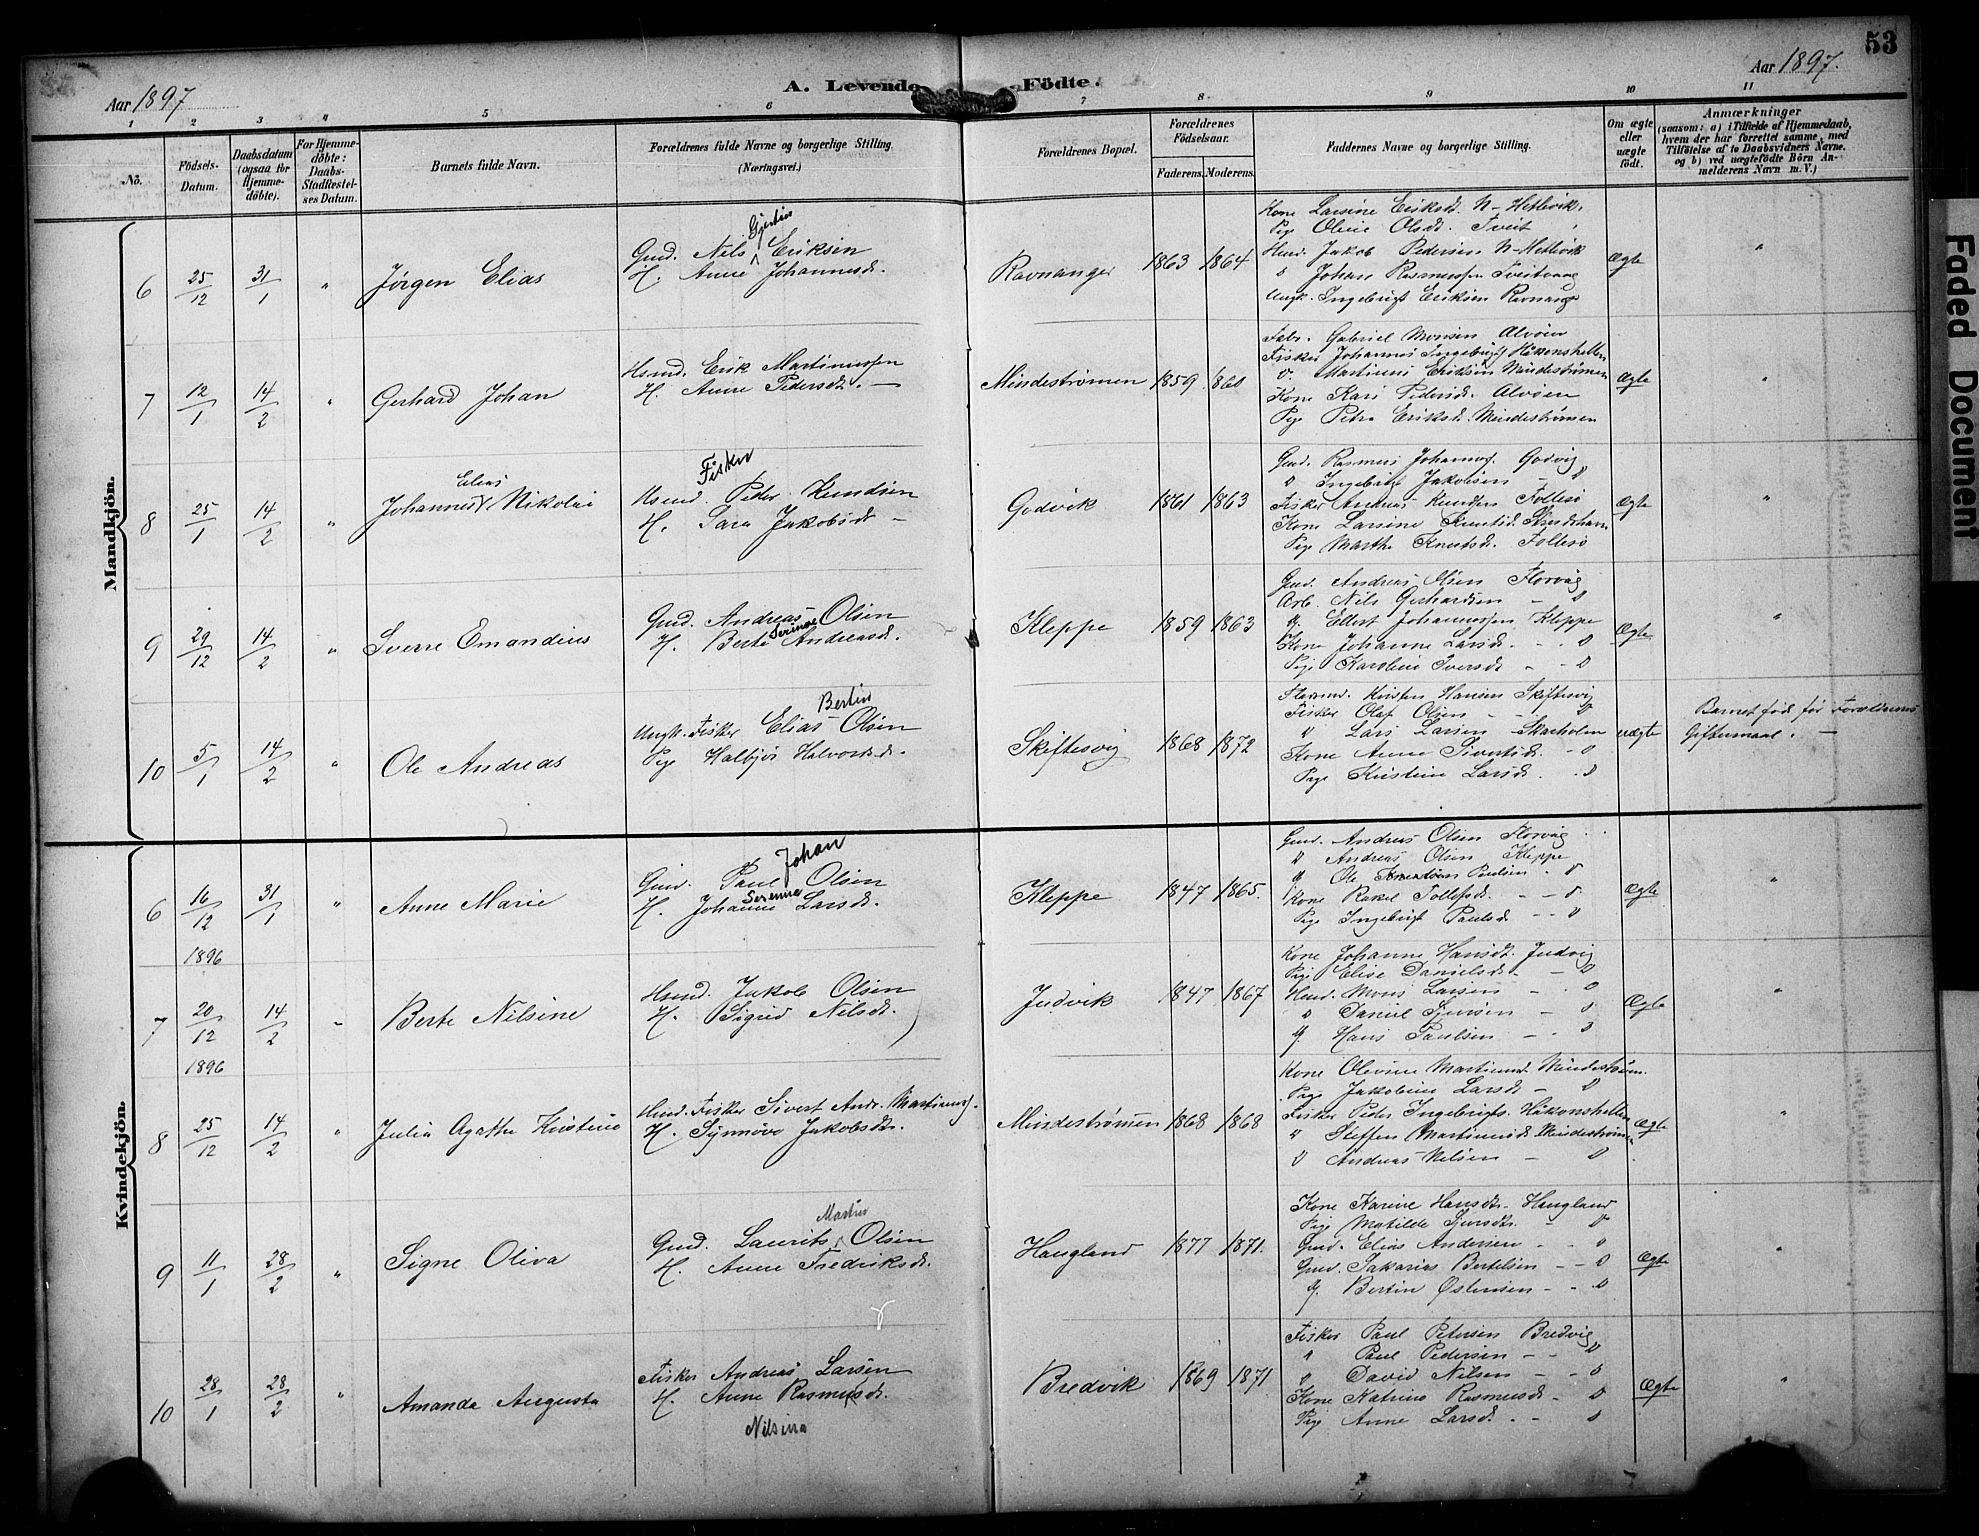 53
Aar 1897
A. Levende Födte.
Aar 1897.
1 2 3 4 5 6 7 8 9 10 11
No.
Födsels-Datum.
Daabsdatum (ogsaa for Hjemmedöbte).
For Hjemmedöbte: Daabs-Stadfæstelses Datum.
Barnets fulde Navn.
Forældrenes fulde Navne og borgerlige Stilling (Næringsvei.)
Forældrenes Bopæl.
Forældrenes Födselsaar.
Faderens. Moderens.
Faddernes Navne og borgerlige Stilling.
Om ægte eller uægte födt.
Anmærkninger
(saasom: a) i Tilfælde af Hjemmedaab, hvem der har forrettet samme, med Tilföielse af to Daabsvidners Navne. og b) ved uægtefödte Börn Anmelderens Navn m. V.)
Mandkjön.
6 25/12 31/1 " Jørgen Elias
Gmd. Nils Gjertin Eriksen
H. Anne Johannesdt.
Ravnanger 1863 1864
Kone Larsine Eriksdt. N-Hetlevik.
Pige Oline Olsdt. Tveit
Gmd. Jakob Pedersen N-Hetlevik
" Johan Rasmussen Tveitvaag
Ungk. Ingebrigt Eriksen Ravnanger
Ægte "
7 12/1 14/2 " Gerhard Johan
Hsmd. Erik Martinussen
H. Anne Pedersdt. —
Mindestrømen 1859 1860
Fabr. Gabriel Monsen Alvøen
Fisker Johannes Ingebrigts Håkonshellen
" Martinus Eriksen Mindestrømen
Kone Kari Pedersdt. Alvøen
Pige Petra Eriksdt. Mindestrømen
Ægte "
8 25/1 14/2 " Johannes Elias Nikolai
Fisker
Hsmd. Peder Knudsen
H. Sara Jakobsdt. —
Godvik 1861 1863
Gmd. Rasmus Johannes. Godvig
" Ingebrigt Jakobsen — "
Fisker Andreas Knudsen Follesø
Kone Larsine Knutsdt. Strudshavn
Pige Marthe Knutsdt. Follesø
Ægte "
9 29/12 14/2 " Sverre Emandius
Gmd. Andreas Olsen
H. Berte Serine Andreasdt.
Kleppe 1859 1863
Gmd. Andreas Olsen Florvåg
Arb. Nils Gerhardsen — "
G. Ellert Johannessen Kleppe
Kone Johanne Larsdt. - - "
Pige Karoline Iversdt. - - "
Ægte "
10 5/1 14/2 " Ole Andreas
Ungk. Fisker Elias Bertin Olsen
Pige Halbjør Halvorsdt.
Skiftesvig 1868 1872
Kristen Hansen Skiftesvig
Fisker Olaf Olsen - - "
" Lars Larsen Skarholm
Kone Anne Sivertsdt. - "
Pige Kristine Larsdt. . "
uægte
Barnet fød før Forældrenes
Giftermaal. —
Kvindekjön.
6 16/12 1896 31/1 " Anne Marie
Gmd. Paul Johan Olsen
H. Johanne Serenne Larsdt.
Kleppe 1847 1865.
Gmd. Andreas Olsen Florvåg
" Andreas Olsen Kleppe
G. Ole Paulsen . "
Kone Rakel Tollefsdt. - - "
Pige Ingebrigt Paulsdt. - - "
Ægte "
7 20/12 1896 14/2 " Berte Nilsine
Hsmd. Jakob Olsen
H. Sigrid Nilsdt.
Judvik 1847 1867
Kone Johanne Hansdt. Judvig
Pige Elise Danielsdt. - - "
Hmd. Mons Larsen - . "
" Daniel Sjursen — "
G. Hans Paulsen — . "
Ægte "
8 25/12 14/2 " Julia Agathe Kristine
Hmd. Fisker Sivert Andr. Martinuss.
H. Synnøve Jakobsdt.
Mindestrømen 1868 1868
Kone Olevine Martinusd. Mindestrøm.
Pige Jakobine Larsdt — "
Fisker Peder Ingebrigts. Håkonshellen
" Steffen Martinussen Mindestrømen
" Andreas Nilsen — "
Ægte "
9 11/1 28/2 " Signe Oliva
Gmd. Laurits Martin Olsen
H. Anne Fredriksdt.
Haugland 1877 1871.
Kone Karine Hansdt. Haugland
Pige Matilde Sjursdt. "
Gmd. Elias Andersen - - "
Gmd. Sakarias Bertelsen - - "
G. Bertin Østensen - - "
Ægte "
10 28/1 28/2 " Amanda Augusta
Fisker Andreas Larsen
H. Anne Rasmusdt.
Nilsina
Bredvik 1869 1871
Fisker Paul Petersen Bredvig
" Paul Pedersen - - "
" David Nilsen - - "
Kone Katrine Rasmusdt - "
Pige Anne Larsdt. - "
Ægte "
Faded Document